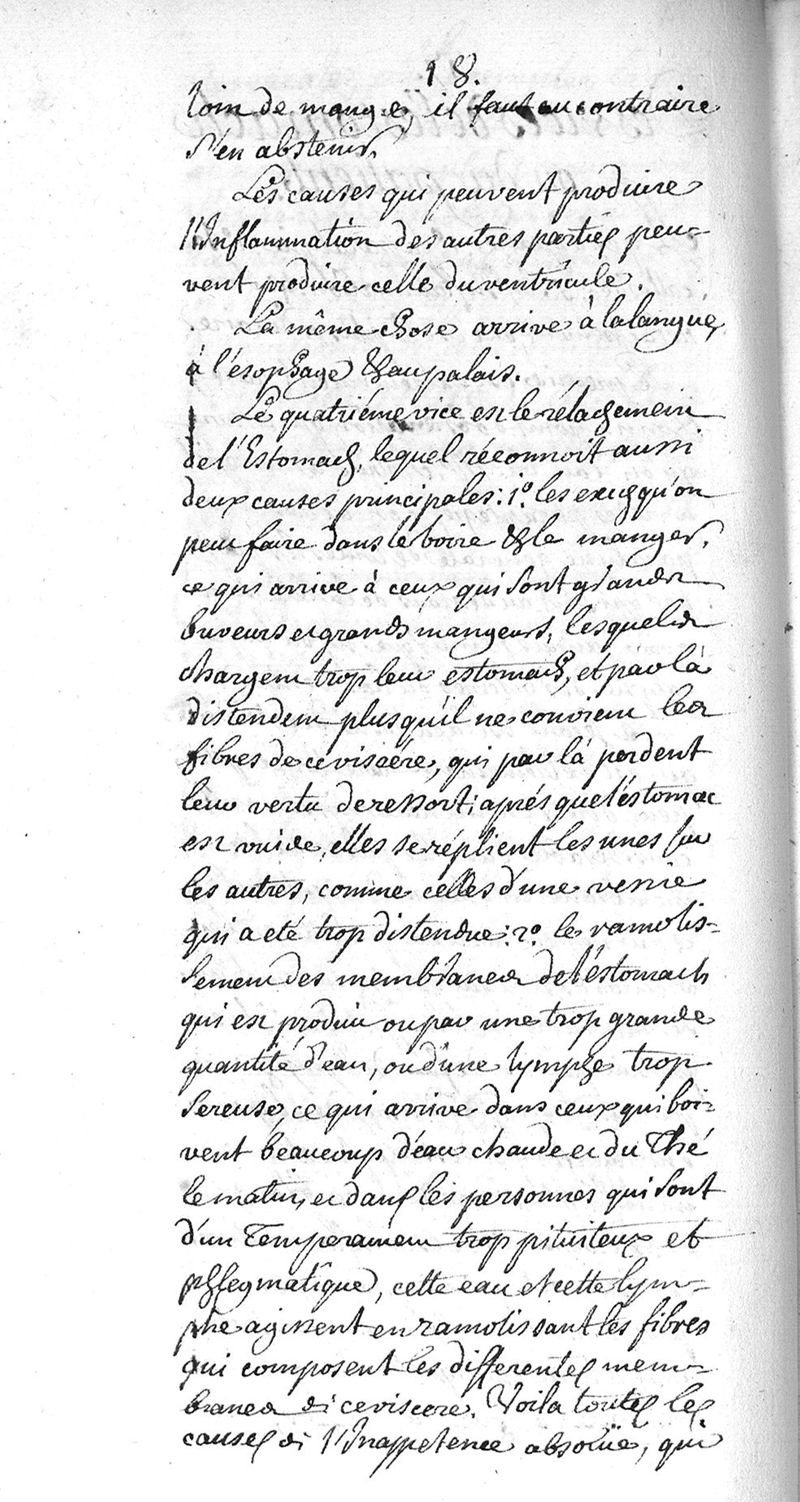 18.
loin de manger, il faut au contraire
s'en abstenir.
Les causes qui peuvent produire
l'Inflammation des autres parties peu-
vent produire celle du ventricule.
La même chose arrive à la langue,
à l'ésophage & au palais.
Le quatriéme vice est le rélachement
de l'Estomach, lequel réconnoit aussi
deux causes principales: 1º. les excès qu'on
peut faire dans le boire & le manger,
ce qui arrive à ceux qui sont grands
buveurs et grands mangeurs, lesquels
chargent trop leur estomach, et par là
distendent plus qu'il ne convient les
fibres de ce viscére, qui par là perdent
leur vertu de ressort; aprés que l'éstomac
est vuide, elles se réplient les unes sur
les autres, comme celles d'une vessie
qui a eté trop distendue: 2º. le ramolis-
sement des membranes de l'éstomach
qui est produit ou par une trop grande
quantité d'eau, ou d'une lymphe trop
sereuse, ce qui arrive dans ceux qui boi-
vent beaucoup d'eau chaude et du Thé
le matin, et dans les personnes qui sont
d'un Temperament trop pituiteux et
phlegmatique, cette eau et cette lym-
phe agissent en ramolissant les fibres
qui composent les differentes mem-
branes de ce viscere. Voila toutes les
causes de l'Inappetence absolüe, qui